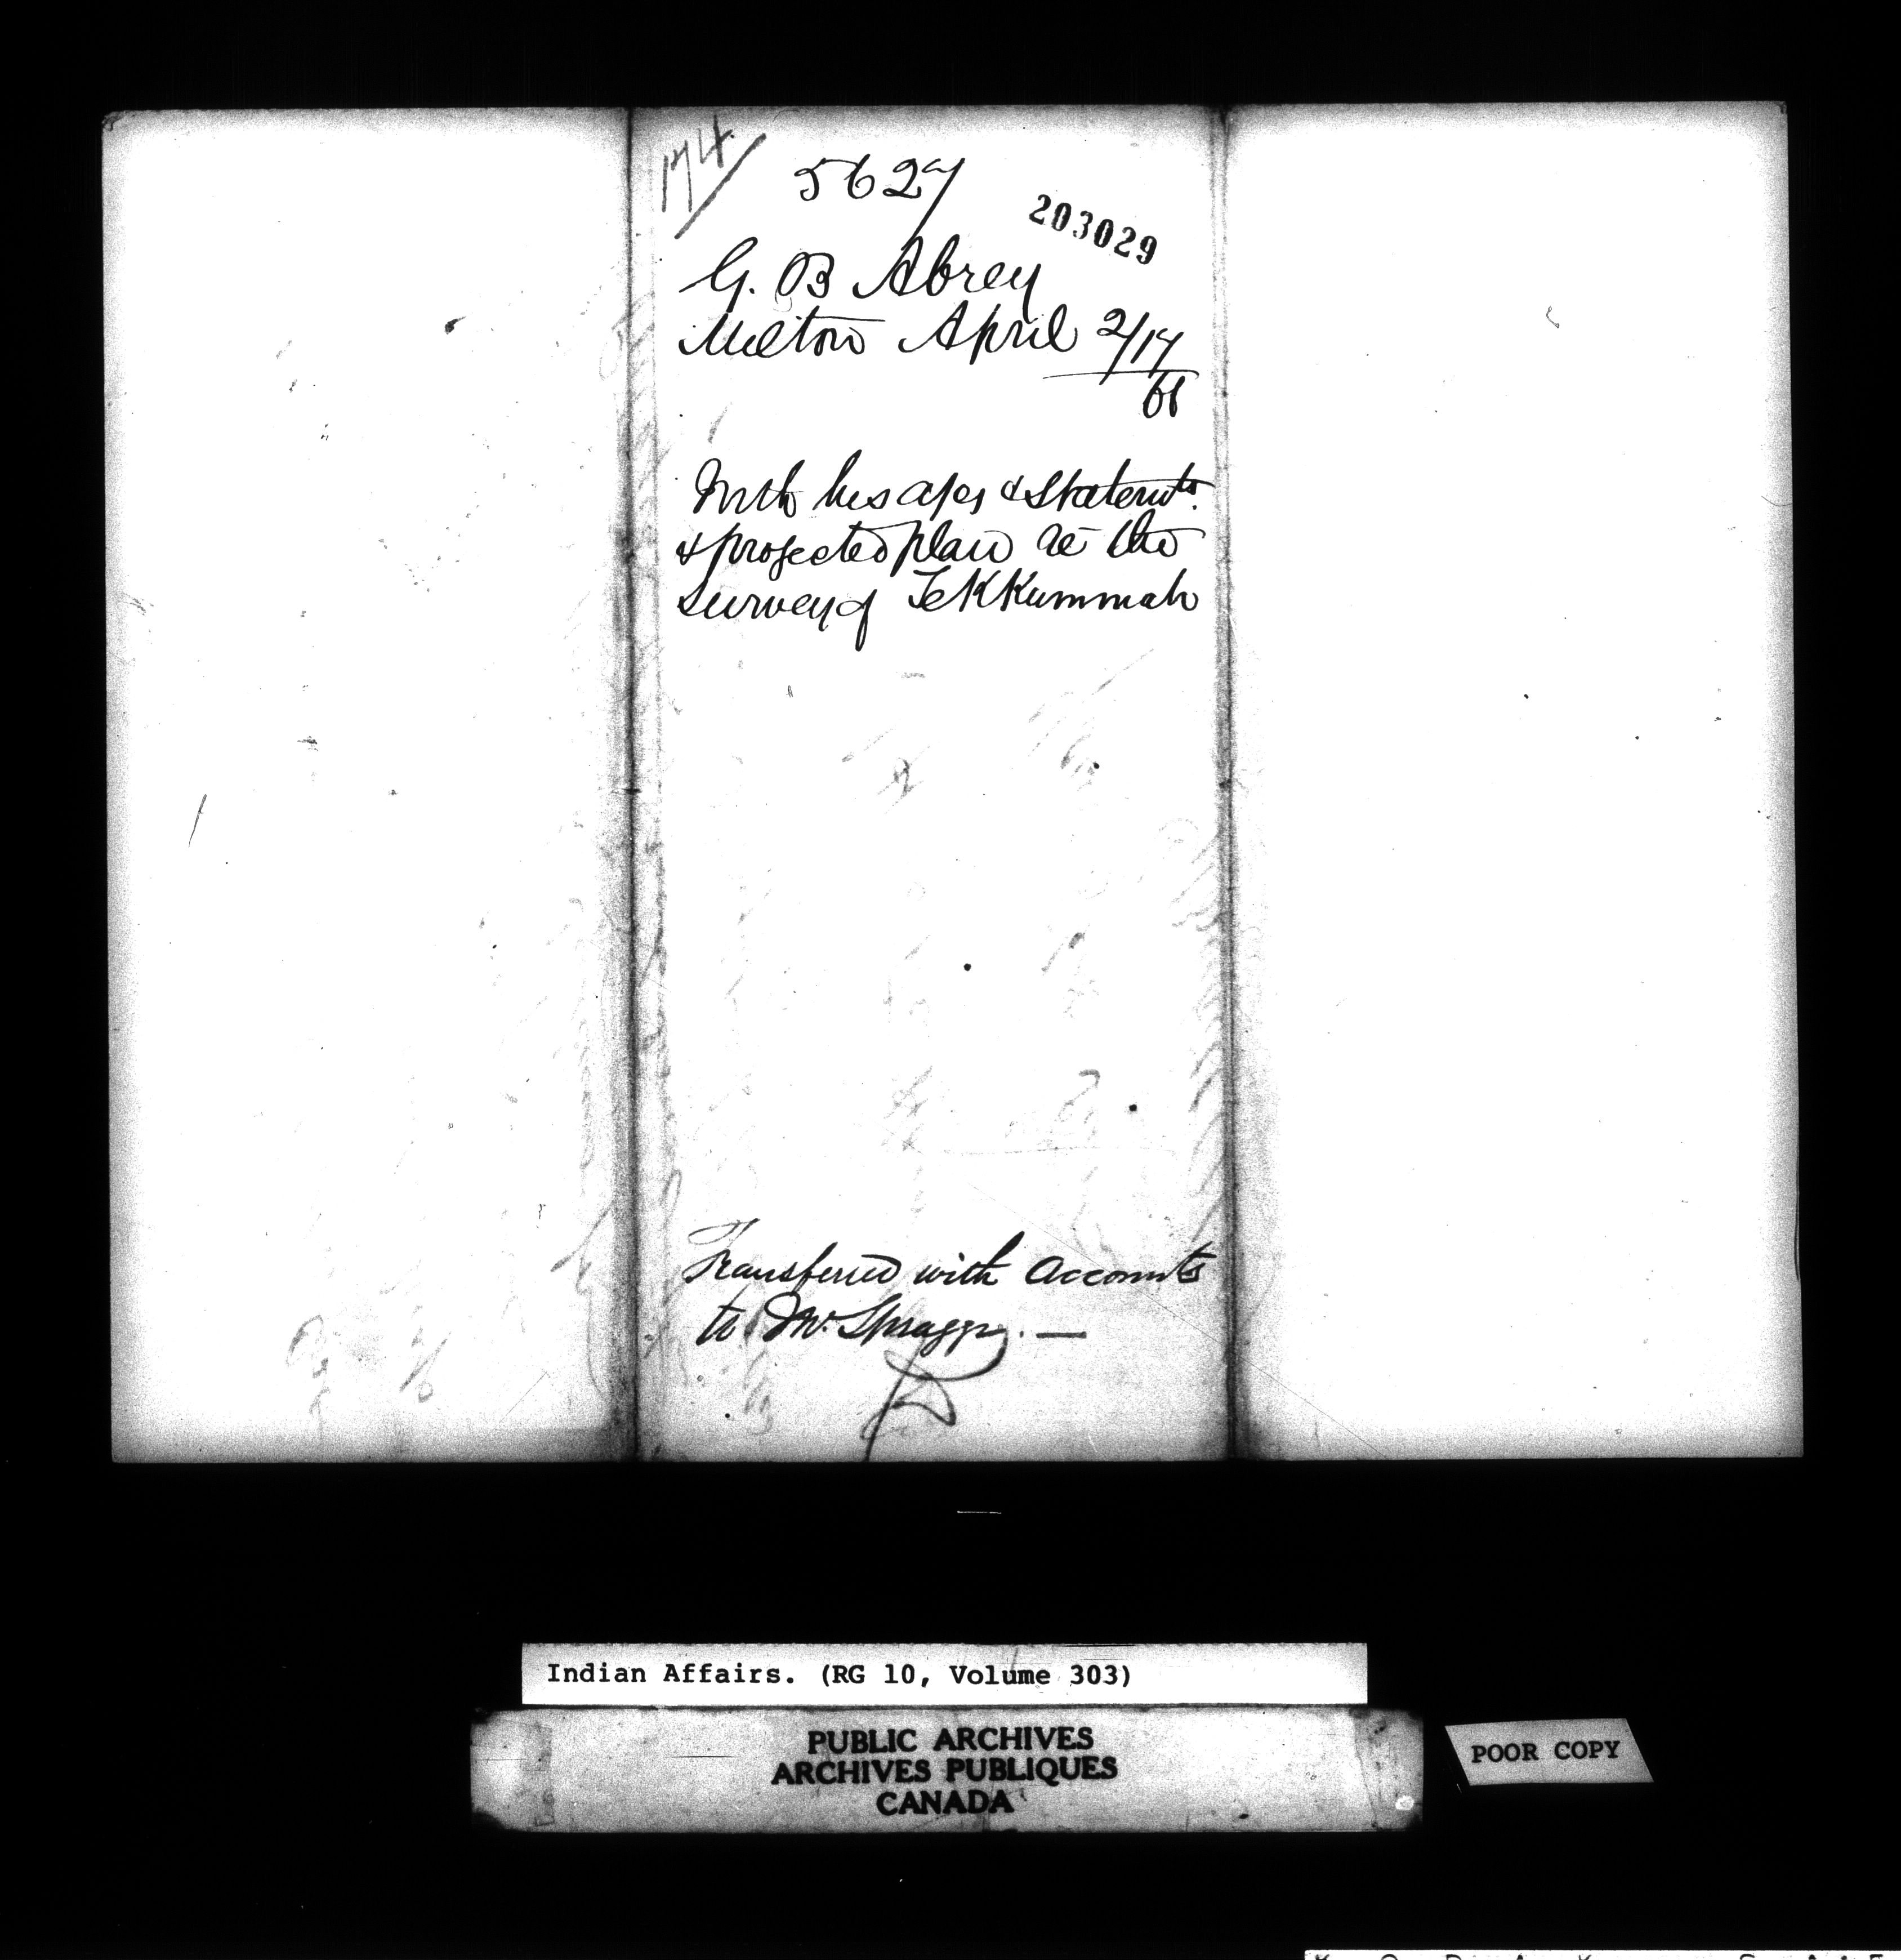 174
5627
203029
G. B Abrey
Milton April 2/17
68
With his a/cs & Statemts.
& projected plan re the
Survey of TekKummah
Transferred with Accounts
to Mr. Spragge. —
Indian Affairs. (RG 10, Volume 303)
PUBLIC ARCHIVES
ARCHIVES PUBLIQUES
CANADA
POOR COPY